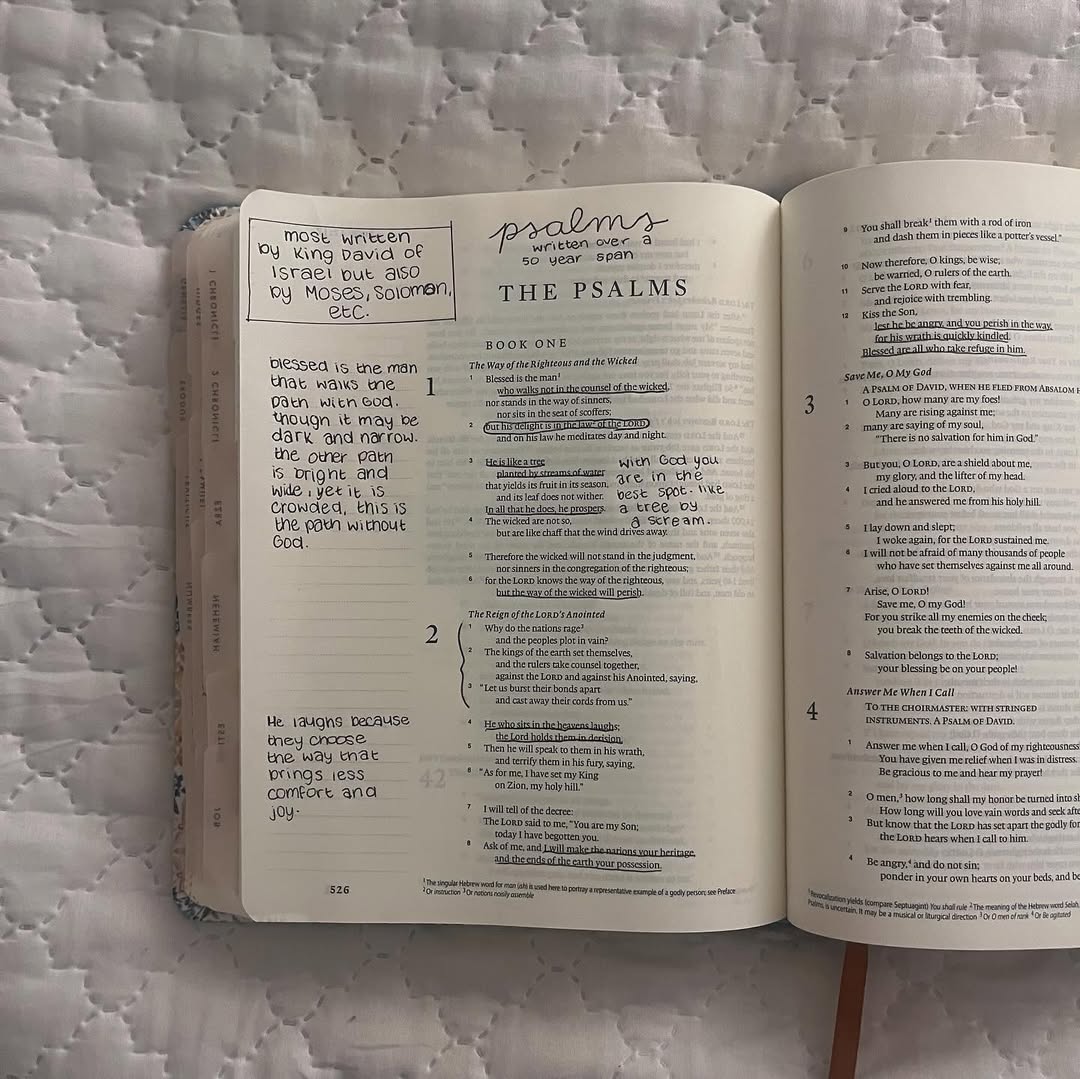 most written
by King David of
Israel but also
by Moses, Soloman,
etc.
psalms
written over a
50 year span
THE PSALMS
BOOK ONE
blessed is the man
that walks the
path with God.
though it may be
dark and narrow.
the other path
is bright and
wide, yet it is
crowded, this is
the path without
God.
The Way of the Righteous and the Wicked
1
1 Blessed is the man1
who walks not in the counsel of the wicked,
nor stands in the way of sinners,
nor sits in the seat of scoffers;
2 but his delight is in the law2 of the LORD,
and on his law he meditates day and night.
3 He is like a tree
planted by streams of water
that yields its fruit in its season,
and its leaf does not wither.
In all that he does, he prospers.
4 The wicked are not so,
but are like chaff that the wind drives away.
with God you
are in the
best spot. like
a tree by
a scream.
5 Therefore the wicked will not stand in the judgment,
nor sinners in the congregation of the righteous;
6 for the LORD knows the way of the righteous,
but the way of the wicked will perish.
The Reign of the LORD'S Anointed
2
1 Why do the nations rage3
and the peoples plot in vain?
2 The kings of the earth set themselves,
and the rulers take counsel together,
against the LORD and against his Anointed, saying,
3 "Let us burst their bonds apart
and cast away their cords from us."
4 He who sits in the heavens laughs;
the Lord holds them in derision.
5 Then he will speak to them in his wrath,
and terrify them in his fury, saying,
6 "As for me, I have set my King
on Zion, my holy hill."
7 I will tell of the decree:
The LORD said to me, "You are my Son;
today I have begotten you.
8 Ask of me, and I will make the nations your heritage,
and the ends of the earth your possession.
He laughs because
they choose
the way that
brings less
comfort and
joy.
526
1 The singular Hebrew word for man (ish) is used here to portray a representative example of a godly person; see Preface
2 Or instruction 3 Or nations noisily assemble
9 You shall break1 them with a rod of iron
and dash them in pieces like a potter's vessel."
10 Now therefore, O kings, be wise;
be warned, O rulers of the earth.
11 Serve the LORD with fear,
and rejoice with trembling.
12 Kiss the Son,
lest he be angry, and you perish in the way,
for his wrath is quickly kindled.
Blessed are all who take refuge in him.
Save Me, O My God
3
A PSALM OF DAVID, WHEN HE FLED FROM ABSALOM H
1 O LORD, how many are my foes!
Many are rising against me;
2 many are saying of my soul,
"There is no salvation for him in God."
3 But you, O LORD, are a shield about me,
my glory, and the lifter of my head.
4 I cried aloud to the LORD,
and he answered me from his holy hill.
5 I lay down and slept;
I woke again, for the LORD sustained me.
6 I will not be afraid of many thousands of people
who have set themselves against me all around.
7 Arise, O LORD!
Save me, O my God!
For you strike all my enemies on the cheek;
you break the teeth of the wicked.
8 Salvation belongs to the LORD;
your blessing be on your people!
Answer Me When I Call
4
TO THE CHOIRMASTER: WITH STRINGED
INSTRUMENTS. A PSALM OF DAVID.
1 Answer me when I call, O God of my righteousness
You have given me relief when I was in distress.
Be gracious to me and hear my prayer!
2 O men,3 how long shall my honor be turned into sh
How long will you love vain words and seek afte
3 But know that the LORD has set apart the godly for
the LORD hears when I call to him.
4 Be angry,4 and do not sin;
ponder in your own hearts on your beds, and be
1 Revocalization yields (compare Septuagint) You shall rule 2 The meaning of the Hebrew word Selah,
Psalms, is uncertain. It may be a musical or liturgical direction 3 Or O men of rank 4 Or Be agitated